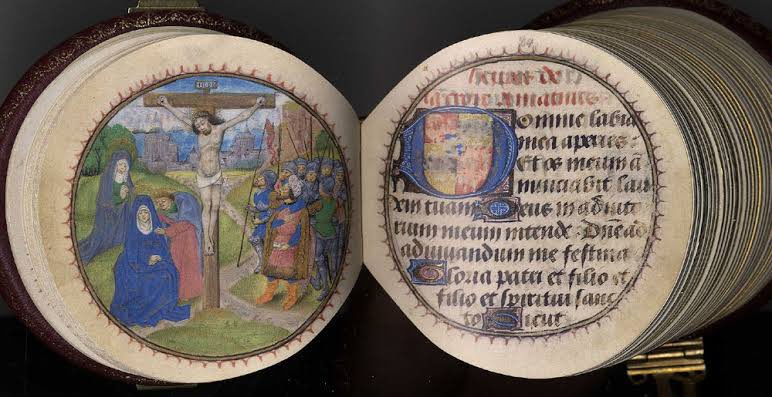 INRI
heures de
matines
Domine labia
mea aperies
Et os meum ā
nunciabit lau
dem tuam Deus in adiuto
rium meum intende Dne ad
adiuuandum me festina
Gloria patri et filio et
filio et spiritui sanc
to Sicut